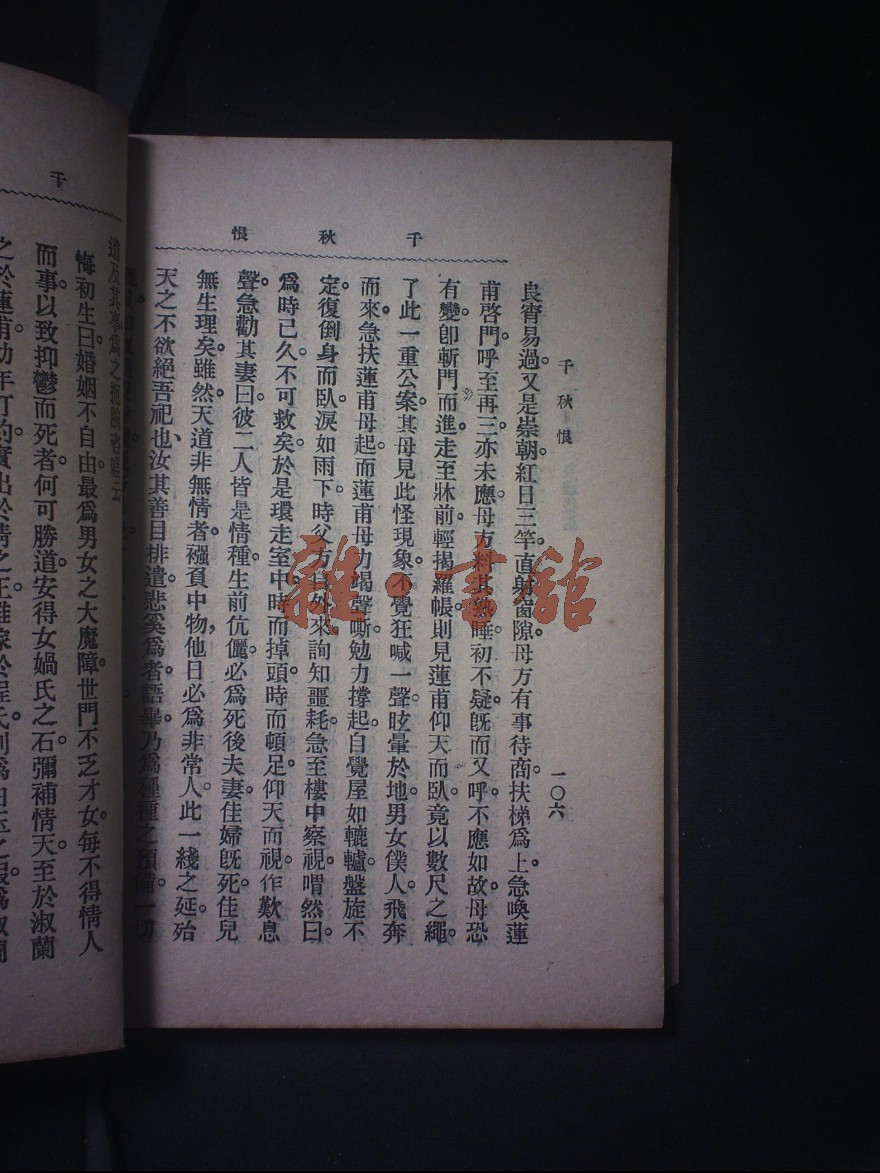 千秋恨
千秋恨
一〇六
良宵易過。又是崇朝。紅日三竿。直射窗隙。母方有事待商。扶梯爲上。急喚蓮
甫啓門。呼至再三。亦未應。母方料其熟睡。初不疑。旣而又呼。不應如故。母恐
有變。卽斬門而進。走至牀前。輕揭羅帳。則見蓮甫仰天而臥。竟以數尺之繩。
了此一重公案。其母見此怪現象。不覺狂喊一聲。眩暈於地。男女僕人。飛奔
而來。急扶蓮甫母起。而蓮甫母力竭聲嘶。勉力撐起。自覺屋如轆轤。盤旋不
定。復倒身而臥。淚如雨下。時父方自外來。詢知噩耗。急至樓中察視。喟然曰。
爲時已久。不可救矣。於是環走室中。時而掉頭。時而頓足。仰天而視。作歎息
聲。急勸其妻曰。彼二人皆是情種。生前伉儷。必爲死後夫妻。佳婦旣死。佳兒
無生理矣。雖然。天道非無情者。襁負中物。他日必爲非常人。此一綫之延。殆
天之不欲絕吾祀也、汝其善自排遣。悲奚爲者。語畢。乃爲種種之預備。一切
千
遺及其事爲之扼腕咨嗟云
悔初生曰。婚姻不自由。最爲男女之大魔障。世門不乏才女。每不得情人
而事。以致抑鬱而死者。何可勝道。安得女媧氏之石。彌補情天。至於淑蘭
之於蓮甫。幼年訂約。實出於情之正。
雜·書館